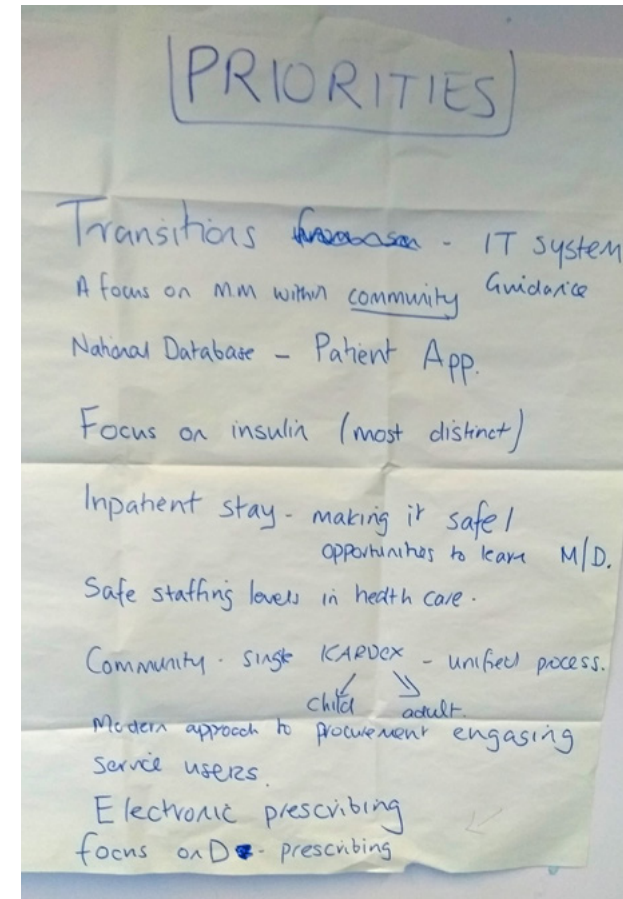 PRIORITIES
Transitions - IT system
Guidance
A focus on MM within community
National Database - Patient App.
Focus on insulin (most distinct)
Inpatient stay - making it safe /
opportunities to learn M/D.
Safe staffing levels in health care.
Community - single KARDEX - unified process.
child adult.
Modern approach to procurement engaging
service users.
Electronic prescribing
focus on D - prescribing